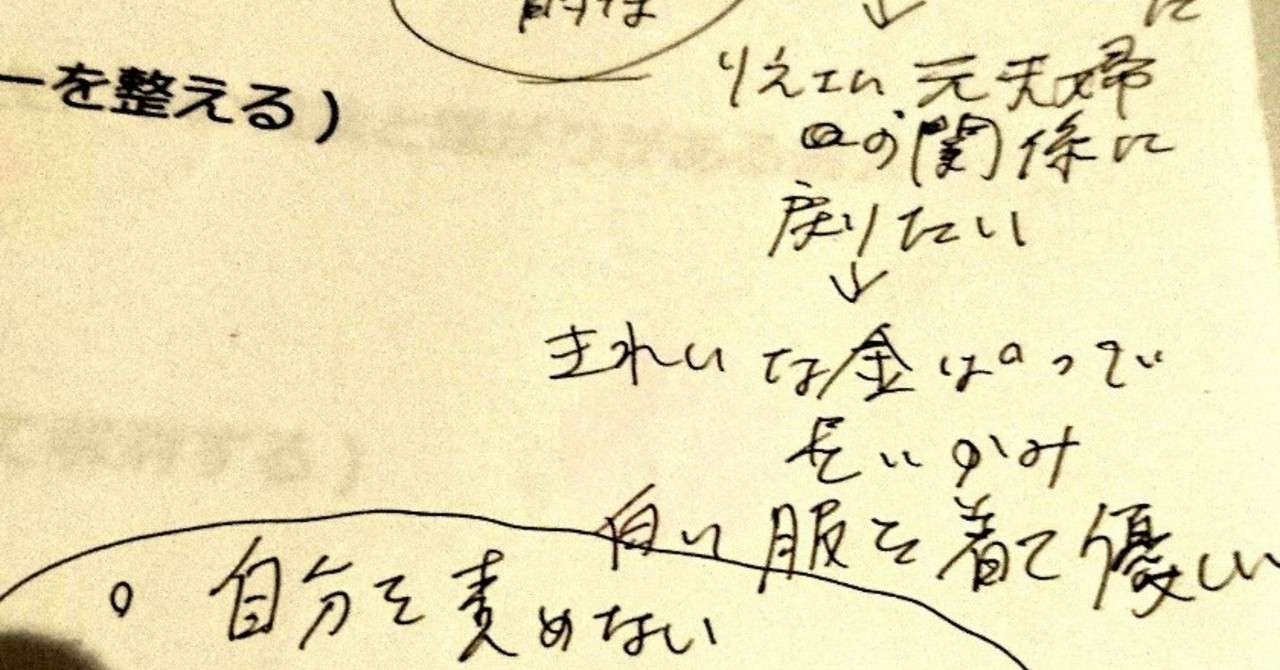 に
ーを整える)
元夫婦
の関係に
戻りたい
きれいな金ぱつで
長いかみ
白い服を着て優しい
自分を責めない